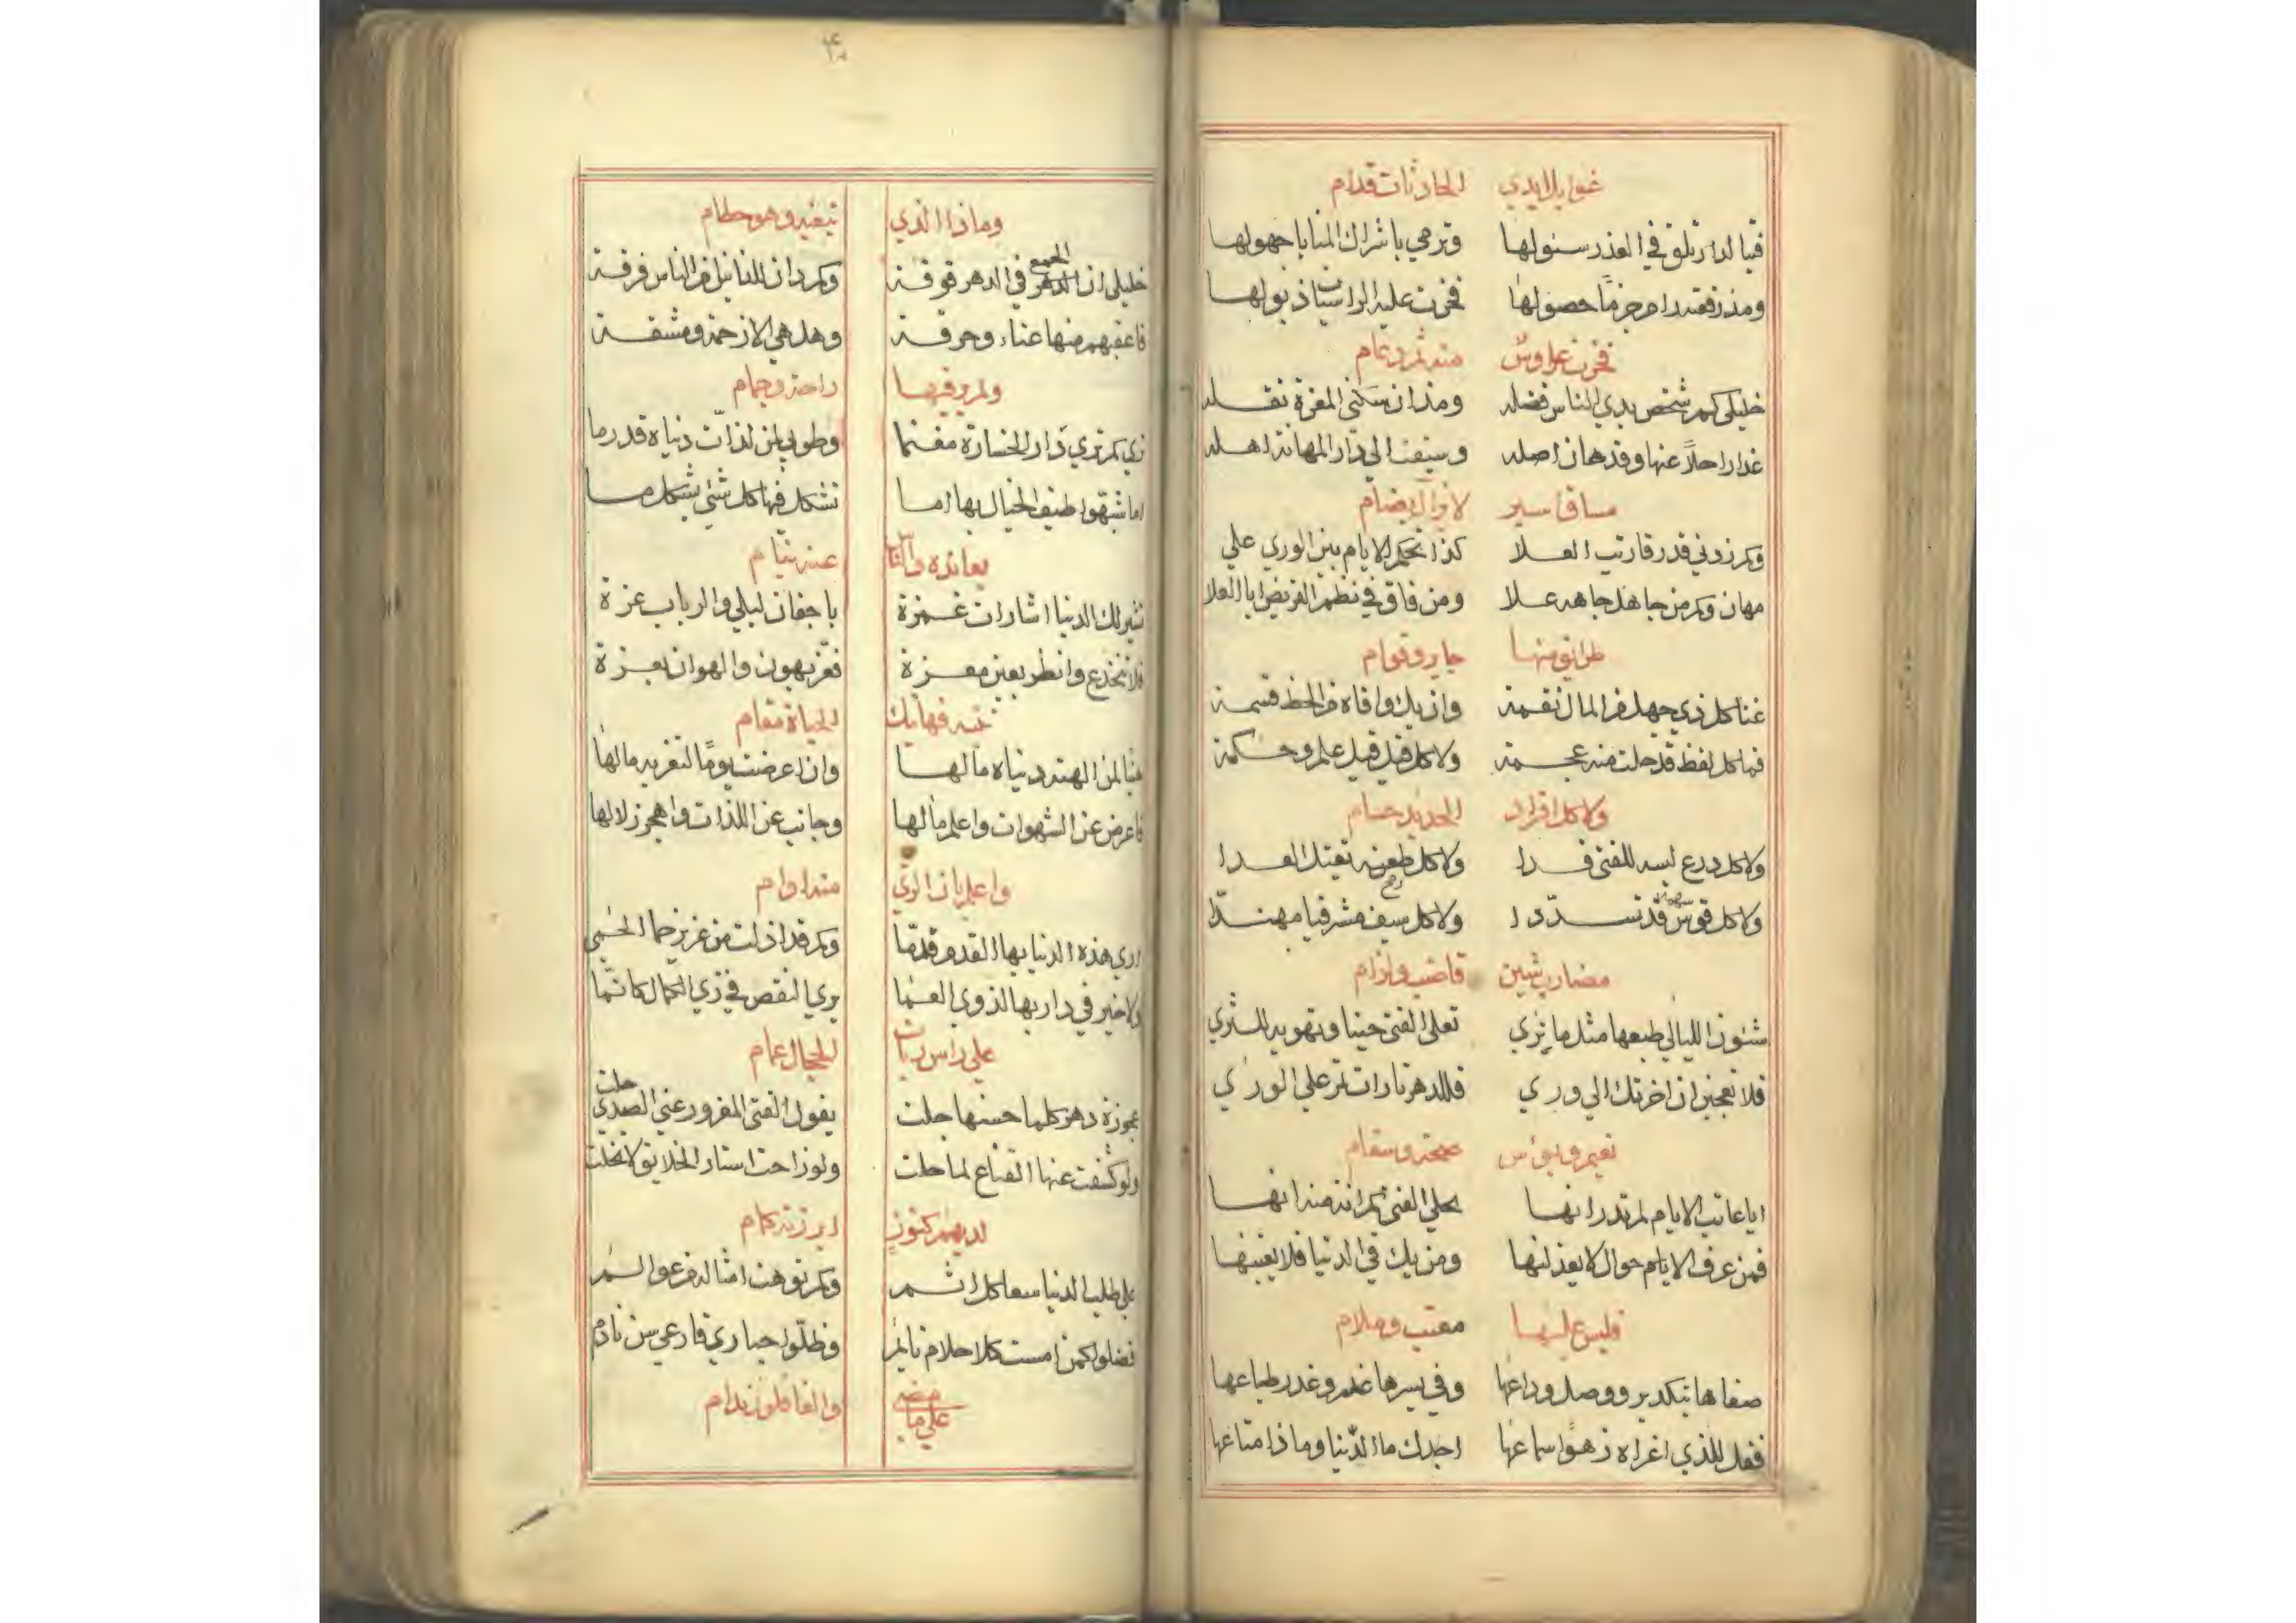 غوايل ايدي الحادثات قدام
فيا لدار تلق في العذر سئولها وترمي باشراك المنايا جهولها
ومذ زفقه رام جزمًا حصولها فخرت عليه الراسيات ذيولها
فخرت عروش منه ثم دعام
خليلي كم شخص يدي الناس فضله ومذ ان سكنى المعزة نقله
غدا راحلاً عنها وقد هان اصله وسيقت الي دار المهانة اهله
مساق اسير لا يزال يضام
وكم زوني قدر قا رتب العلا كذا تحكم الايام بين الوري علي
مهان وكم من جاهل جاهه علا ومن فاق في نظم القريض ابا العلا
طرايق منها جاير وقوام
غنا كل ذي جهل من المال نقمة وان يك وافاه من الحظ قسمة
فما كل لفظ قد حلت منه عجمة ولا كل قيل قيل علم وحكمة
ولا كل افراد الحديد حسام
ولا كل درع لبسه للفتى فدا ولا كل طعنه رمح تقتل العدا
ولا كل قوس سهمه قد تسددا ولا كل سيف مشرفيا مهندا
مضارب شين قاضب وازام
شئون الليالي طبعها مثل ما تري تعلي الفتى حينا وتهويه للثري
فلا تعجبن ان اخرتك الي وري فللدهر تارات تمر علي الوري
نعيم وبؤس صحة وسقام
ايا عاتب الايام لم تدر انها بحلي الفتى كم انة منه انها
فمن عرف الايام حوال لا يعذلنها ومن يك في الدنيا فلا يغببنها
فليس عليها معتب وملام
صفاها بتكدير ووصل وداعها وفي يسرها غدر وغدر طباعها
فقل للذي اغراه زهوا سماعها اجدك ما الدنيا وماذا متاعها
وماذا الذي تبغيه وهو حطام
خليلي ان الجمع في الدهر فوقة وكم دان للدنا من الناس فرقة
فاعقبهم منها عناء وحرقة وهل هي الا زحمة ومشقة
ولم يرو فيها راحة وجمام
زي كم تري دار الخسارة مغنما وطوبي لمن لذات دنياه قد رما
اما شبهوا طيف الخيال بها اما تشكل فيها كل شئ بشكل ما
يعانده والناس عنه نيام
تشير لك الدنيا اشارات غمزة باجفان ليلي والرباب عزة
فلا تنخدع وانظر بعين معزة فعز بهون والهوان بعزة
تنبه فهاتيك الحياة مقام
هنيا لمن الهته دنياه مالها وان اعرضت يوما لتغريه مالها
فاعرض عن الشهوات واعلم مالها وجانب عن اللذات واهجر زلالها
واعلم بان الري منها اوام
اري هذه الدنيا بها القدم قدما وكم قد اذلت من عزيز حما الحمي
ولا خير في دار بها لذوي العما يري النقص في زي الكمال كانما
علي راس ربات الحجال عمام
عجوزة دهر كلما حسنها جلت يقول الفتى المغرور عني الصدي جلت
ولو كشفت عنها القناع لما حلت ولو زاحت استار الخلايق لانجلت
لديهم كنوز ابرزته كمام
علي طلب الدنيا سعا كل اثم وكم توهت امثاله فرعوا لسم
فضلوا كمن امست كلا حلام نايم وظلوا حياري قارعي سن نادم
علي ما مضي والغافلون ندام